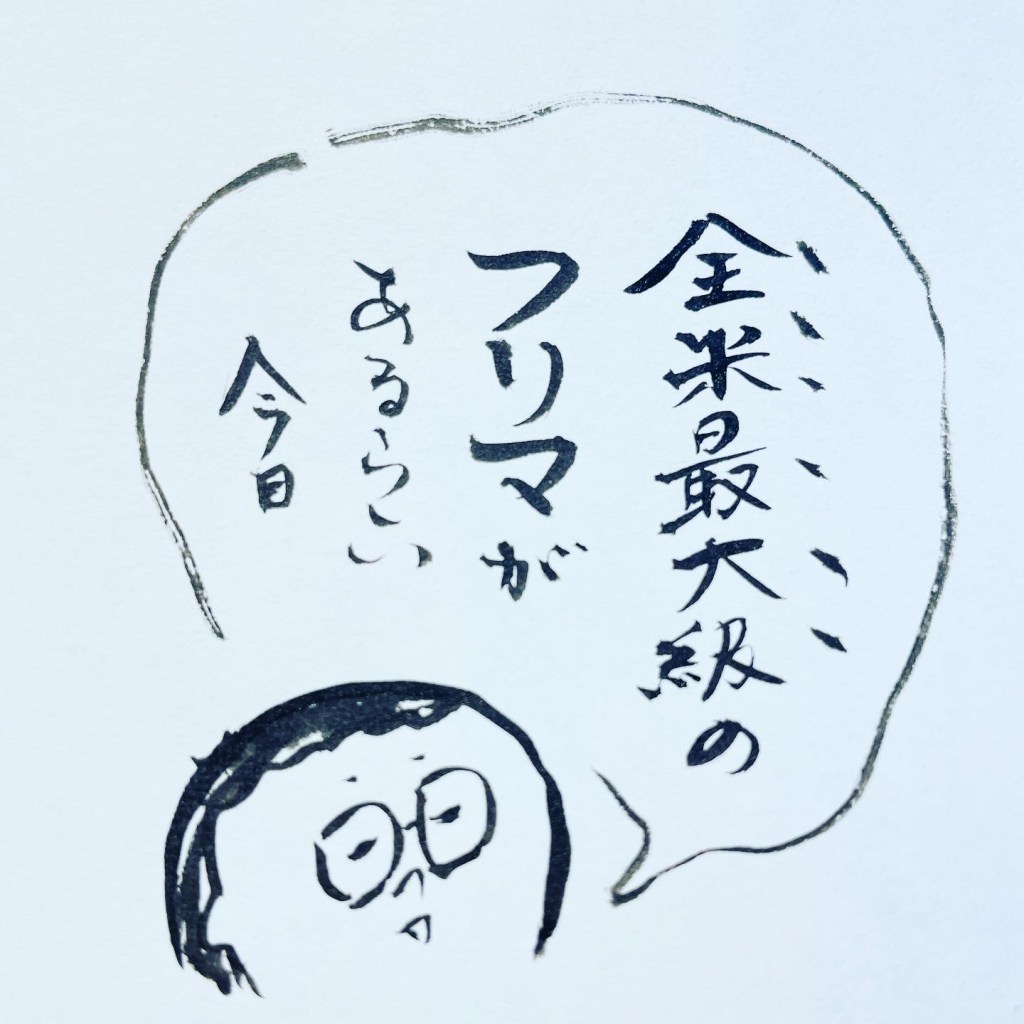 全米最大級の
フリマが
あるらしい
今日